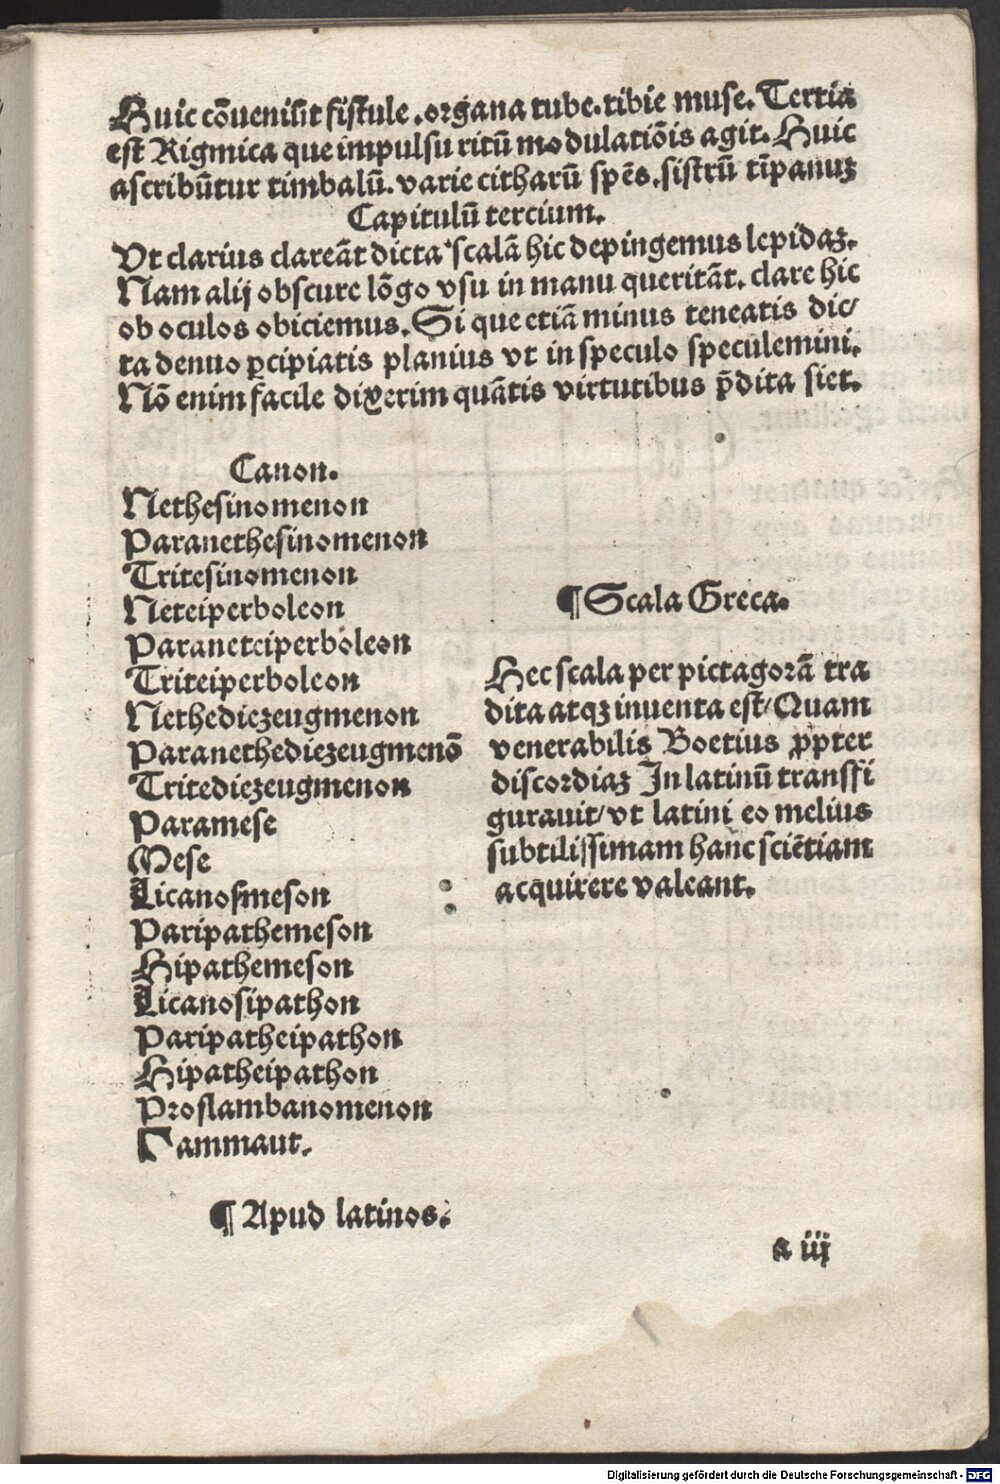 Huic cōueniūt fistule .organa tube.tibie muse. Tertia
est Rigmica que impulsu ritū modulatiōis agit. Huic
ascribūtur timbalū. varie citharū spēs.sistrū tīpanuꝫ
Capitulū tercium.
Vt clarius clareāt dicta scalā hic depingemus lepidaꝫ.
Nam alij obscure lōgo vsu in manu queritāt. clare hic
ob oculos obiciemus. Si que etiā minus teneatis dic/
ta denuo ꝑcipiatis planius vt in speculo speculemini.
Nō enim facile dixerim quātis virtutibus p̄dita siet.
Canon.
Nethesinomenon
Paranethesinomenon
Tritesinomenon
Neteiperboleon
Paraneteiperboleon
Triteiperboleon
Nethediezeugmenon
Paranethediezeugmenō
Tritediezeugmenon
Paramese
Mese
Licanosmeson
Paripathemeson
Hipathemeson
Licanosipathon
Paripatheipathon
Hipatheipathon
Proslambanomenon
Γammaut.
¶ Scala Greca.
Hec scala per pictagorā tra
dita atqꝫ inuenta est/ Quam
venerabilis Boetius ꝓpter
discordiaꝫ In latinū transfi
gurauit/ vt latini eo melius
subtilissimam hanc sciētiam
acquirere valeant.
¶ Apud latinos.
a iij
Digitalisierung gefördert durch die Deutsche Forschungsgemeinschaft - DFG